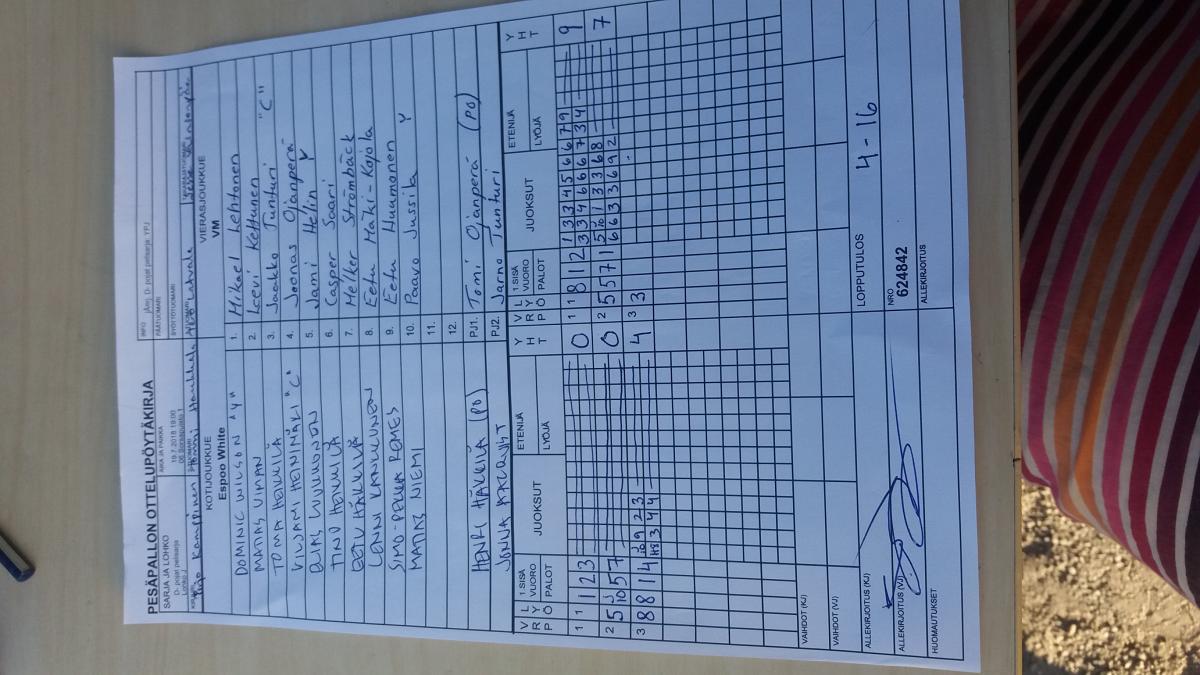 PESÄPALLON OTTELUPÖYTÄKIRJA
SARJA JA LOHKO
D- pojat pelisarja
Lohko J
AIKA JA PAIKKA
19.7.2018 19:00
INFO jÄrj. D- pojat pelisarja YPJ
PÄÄTUOMARI
SYÖTTÖTUOMARI
KIRJURI
Kamppinen Tommi
Latvala
KOTIJOUKKUE
Espoo White
VIERASJOUKKUE
VM
DOMINIC WILSON "Y" 1. Mikael Lehtonen
MATIAS VIMAN 2. Leevi Kettunen
TOMA HEIKKILÄ 3. Jaakko Tunturi "C"
VILJAMI HEINIMÄKI "C" 4. Joonas Ojanperä
5. Jami Helin Y
TINO HEIKKILÄ 6. Casper Saari
EETU HÄKKILÄ 7. Melker Strömbäck
LENNI KANKKUNEN 8. Eetu Mäki-Kojola
SIMO-PEKKA REMES 9. Eetu Huumonen
MATIAS NIEMI 10. Paavo Jussila Y
11.
12.
HENRI HÄKKILÄ (PO) PJ1. Tomi Ojanperä (PO)
JONNA PJ2. Jarno Tunturi
V R P L Y Ö 1:SISÄ VUORO PALOT JUOKSUT ETENIJÄ LYÖJÄ Y H T V R P L Y Ö 1:SISÄ VUORO PALOT JUOKSUT ETENIJÄ LYÖJÄ Y H T
1 1 1 2 3 0 1 1 8 1 2 1 3 3 4 5 6 6 7 9 9
3 3 4 6 6 6 7 3 4
2 5 10 5 7 0 2 5 5 7 1 5 10 1 3 3 6 8 7
6 6 3 3 6 9 2
3 8 8 1 4 10 9 2 3 4 3 3
3 4 4
VAIHDOT (KJ)
VAIHDOT (VJ)
LOPPUTULOS
4 - 16
ALLEKIRJOITUS (KJ)
NRO
624842
ALLEKIRJOITUS (VJ)
ALLEKIRJOITUS
HUOMAUTUKSET